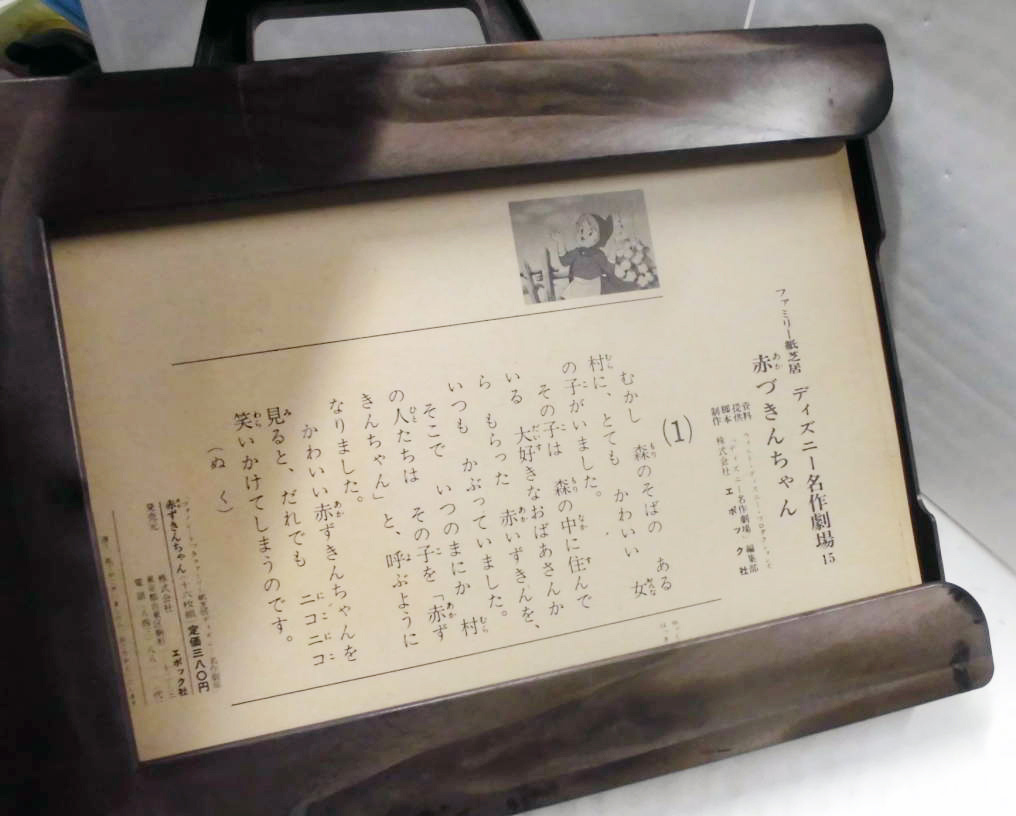 ファミリー紙芝居 ディズニー名作劇場15
赤づきんちゃん
資料提供 ウォルト・ディズニー・プロダクションズ
脚本 「ディズニー名作劇場」編集部
制作 株式会社 エポック社
(1)
むかし 森のそばの ある
村に、とても かわいい 女
の子がいました。
その子は 森の中に住んで
いる 大好きなおばあさんか
ら もらった 赤いずきんを、
いつも かぶっていました。
そこで いつのまにか 村
の人たちは その子を「赤ず
きんちゃん」 と、呼ぶように
なりました。
かわいい赤ずきんちゃんを
見ると、だれでも ニコニコ
笑いかけてしまうのです。
(ぬく)
赤ずきんちゃん 十六枚組 定価三八〇円
発売元 株式会社 エポック社